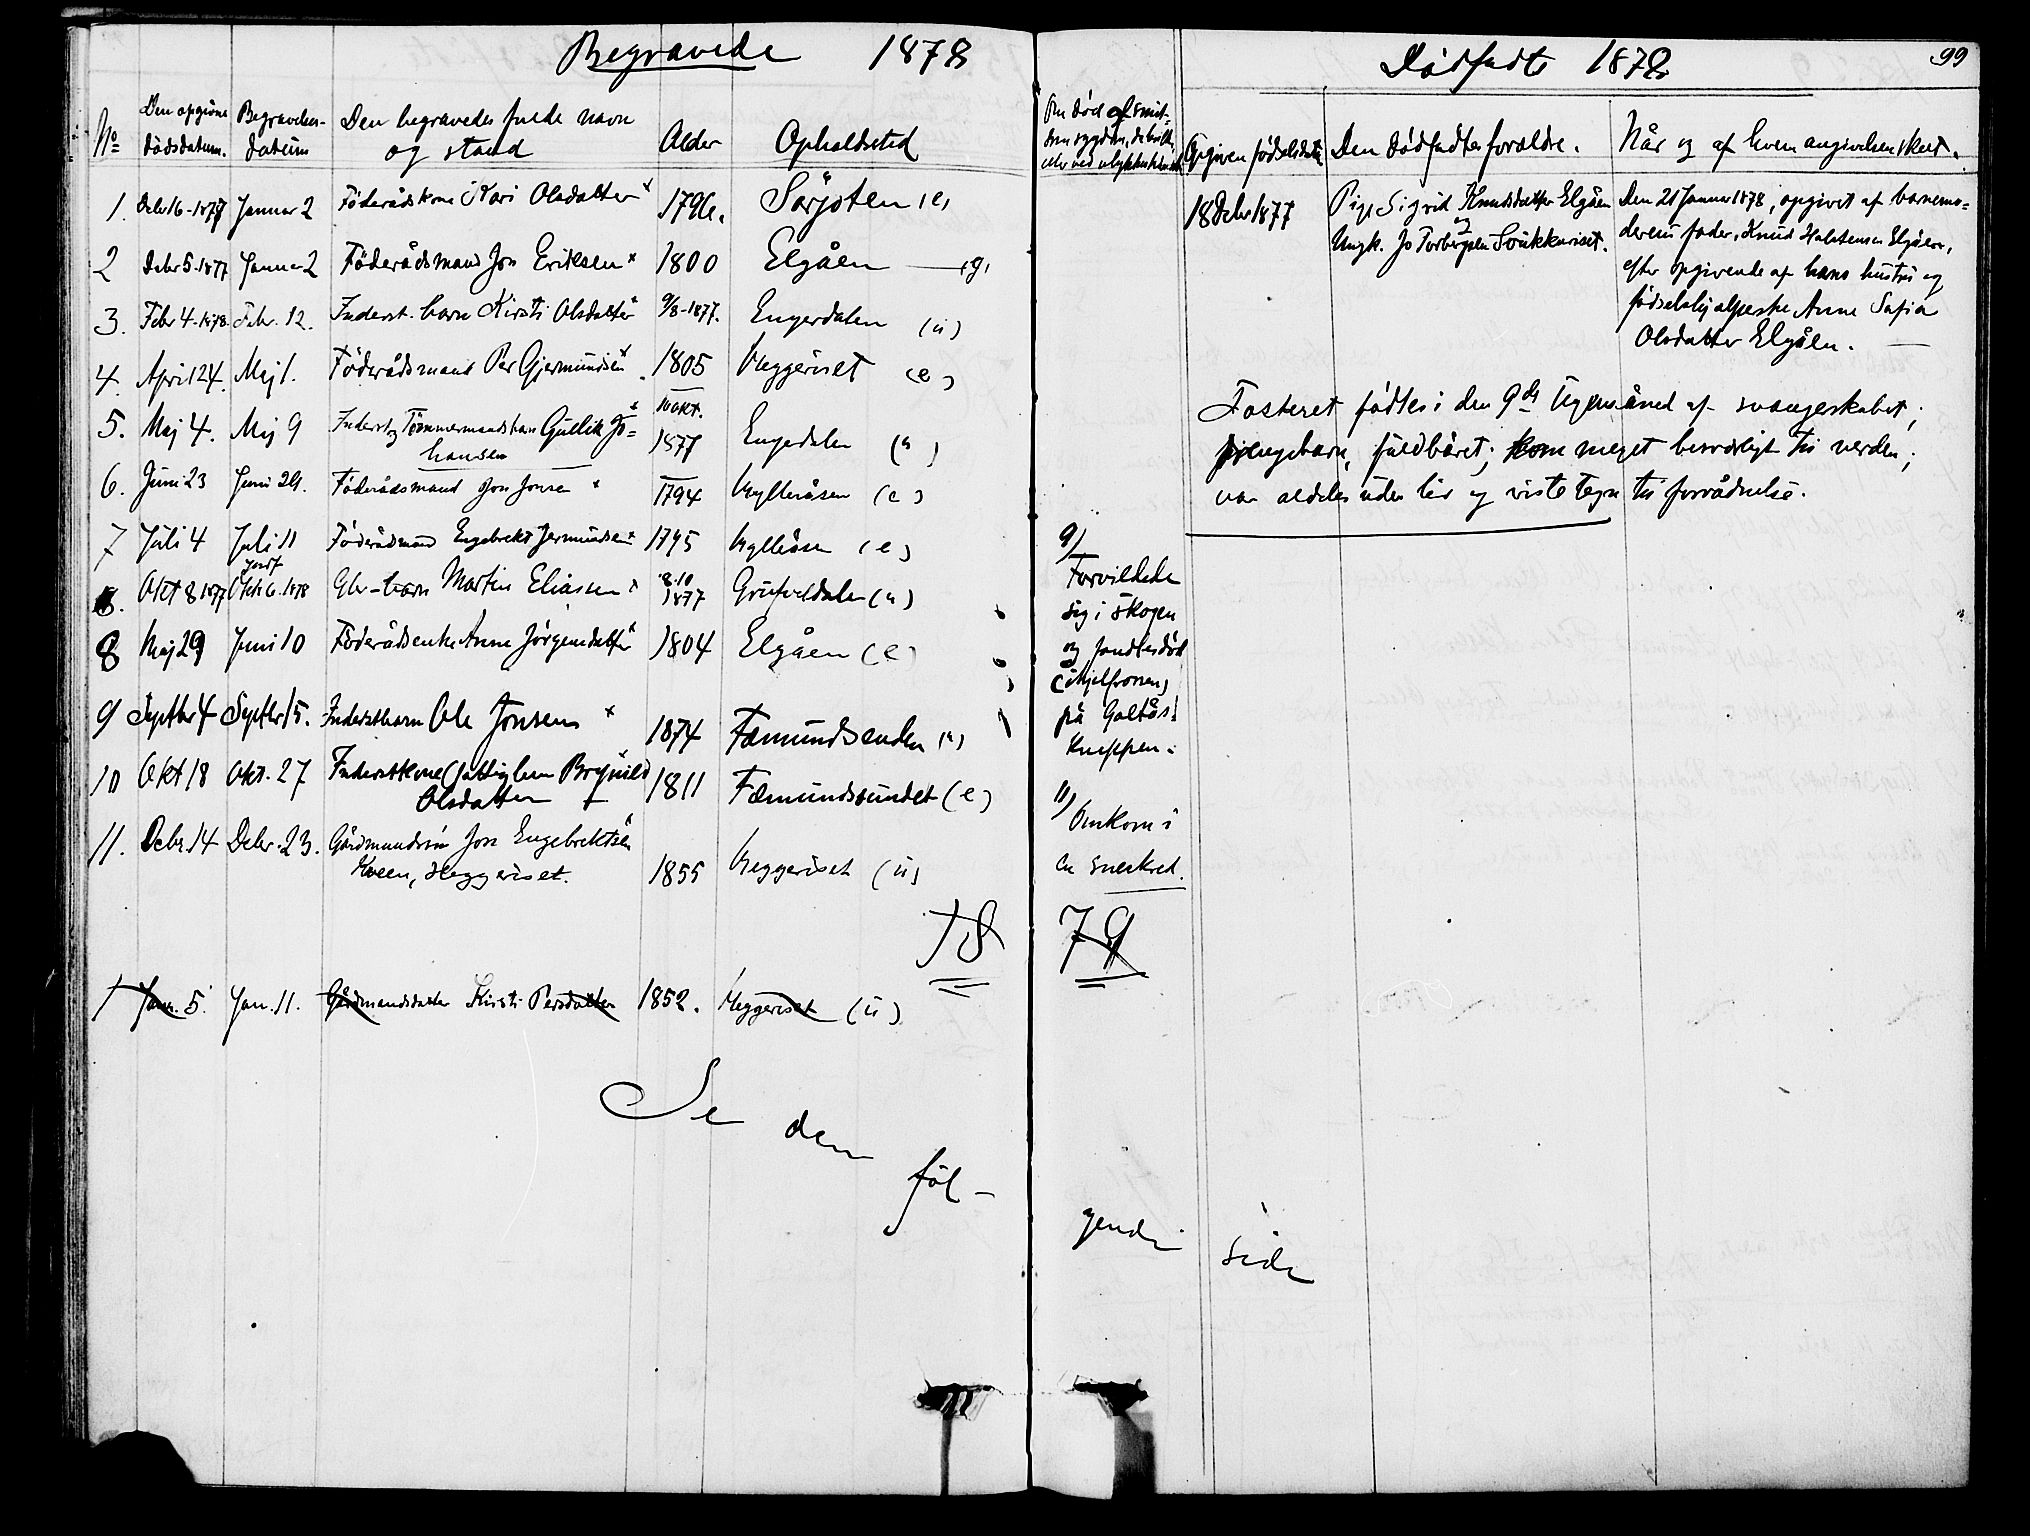 Begravede 1878
Nº Den opgivne dødsdatum. Begravelses-datum Den begravedes fulde navn og stand Alder Opholdssted
1. Debr 16-1877 Januar 2 Föderådskone Kari Olsdatter x 1796. Sørjoten (e)
2 Debr 5-1877 Januar 2 Föderådsmand Jon Eriksen x 1800 Elgåen — (g)
3. Febr 4-1878. Febr. 12. Inderst. barn Kirsti Olsdatter x 9/8-1877. Engerdalen (u)
4. April 24. Maj 1. Föderådsmand Per Gjermundsen x 1805 Heggeriset (e)
5. Maj 4. Maj 9 Inderst og Tømmermandsbarn Gullik Jo=
hansen 10 okt. 1877 Engerdalen (u)
6. Juni 23 Juni 29. Föderådsmand Jon Jonsen x 1794 Hylleråsen (e)
7 Juli 4 Juli 11 Föderådsmand Engebrekt Jermundsen x 1795 Hylleråsen (e)
Jordf
8. Okt 8 1877 Okt 6. 1878 Gbr-barn Martin Eliassen x 8-10 1877 Grufveldalen (u)
8 Maj 29 Juni 10 Föderådsenke Anne Jörgensdatter x 1804 Elgåen (e)
9 Septbr 4 Septbr 15. Inderstbarn Ole Jonsen x 1874 Fæmundsenden (u)
10 Okt 18 Okt. 27 Inderstkone (fattiglem Brynild
Olsdatter x 1811 Fæmundssundet (e)
11. Debr. 14 Debr. 23. Gårdmandssøn Jon Engebrektsen
Kveen, Heggeriset. 1855 Heggeriset (u)
18
1 Janr. 5. Jan. 11. Gårdmandsdatter Kirsti Persdatter 1852. Heggeriset (u)
Se den föl-
gende side
Om död af smit-
som sygdom,
eller ved ulykkestilfælde
9)
Forvildede
sig i skogen
og fandtes död
(ihjelfrossen)
på Galtås-
knippen.
11)
Omkom i
en sneskred.
79
Dødfødte 1878
99
Opgiven fødselsdatum Den dødfødtes forældre. Når og af hvem angivelsen skeet.
18 Debr 1877 Pige Sigrid Knudsdatter Elgåen
og
Ungk. Jo Torbergsen Sönkkeriset.
Den 21 Januar 1878, opgivet af barnemo=
derens fader, Knud Halstensen Elgåen,
efter opgivende af hans hustru og
fødselshjælperske Anne Sofia
Olsdatter Elgåen. —
Fosteret fødtes i den 9de Ugemåned af svangerskabet;
pigebarn, fuldbåret; kom meget besværligt til verden;
var aldeles uden liv og viste tegn til forrådnelse.